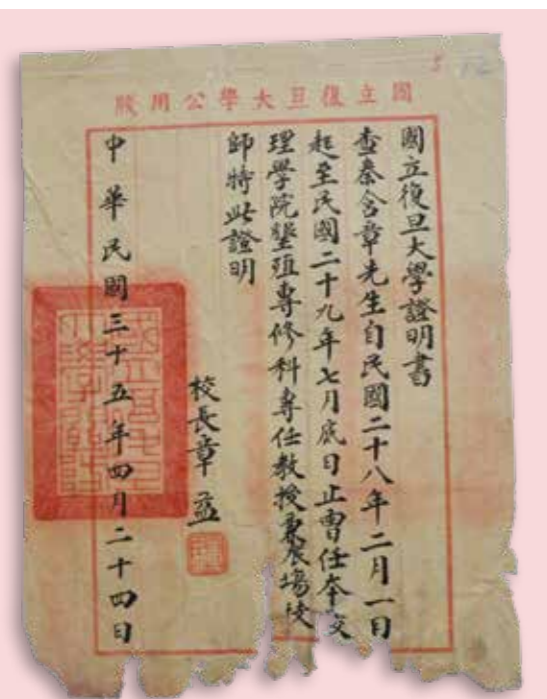 國立復旦大學公用牋
國立復旦大學證明書
查秦含章先生自民國二十八年二月一日
起至民國二十九年七月底日止曾任本文
理學院墾殖專修科專任教授兼農場技
師特此證明
校長章益
中華民國三十五年四月二十四日